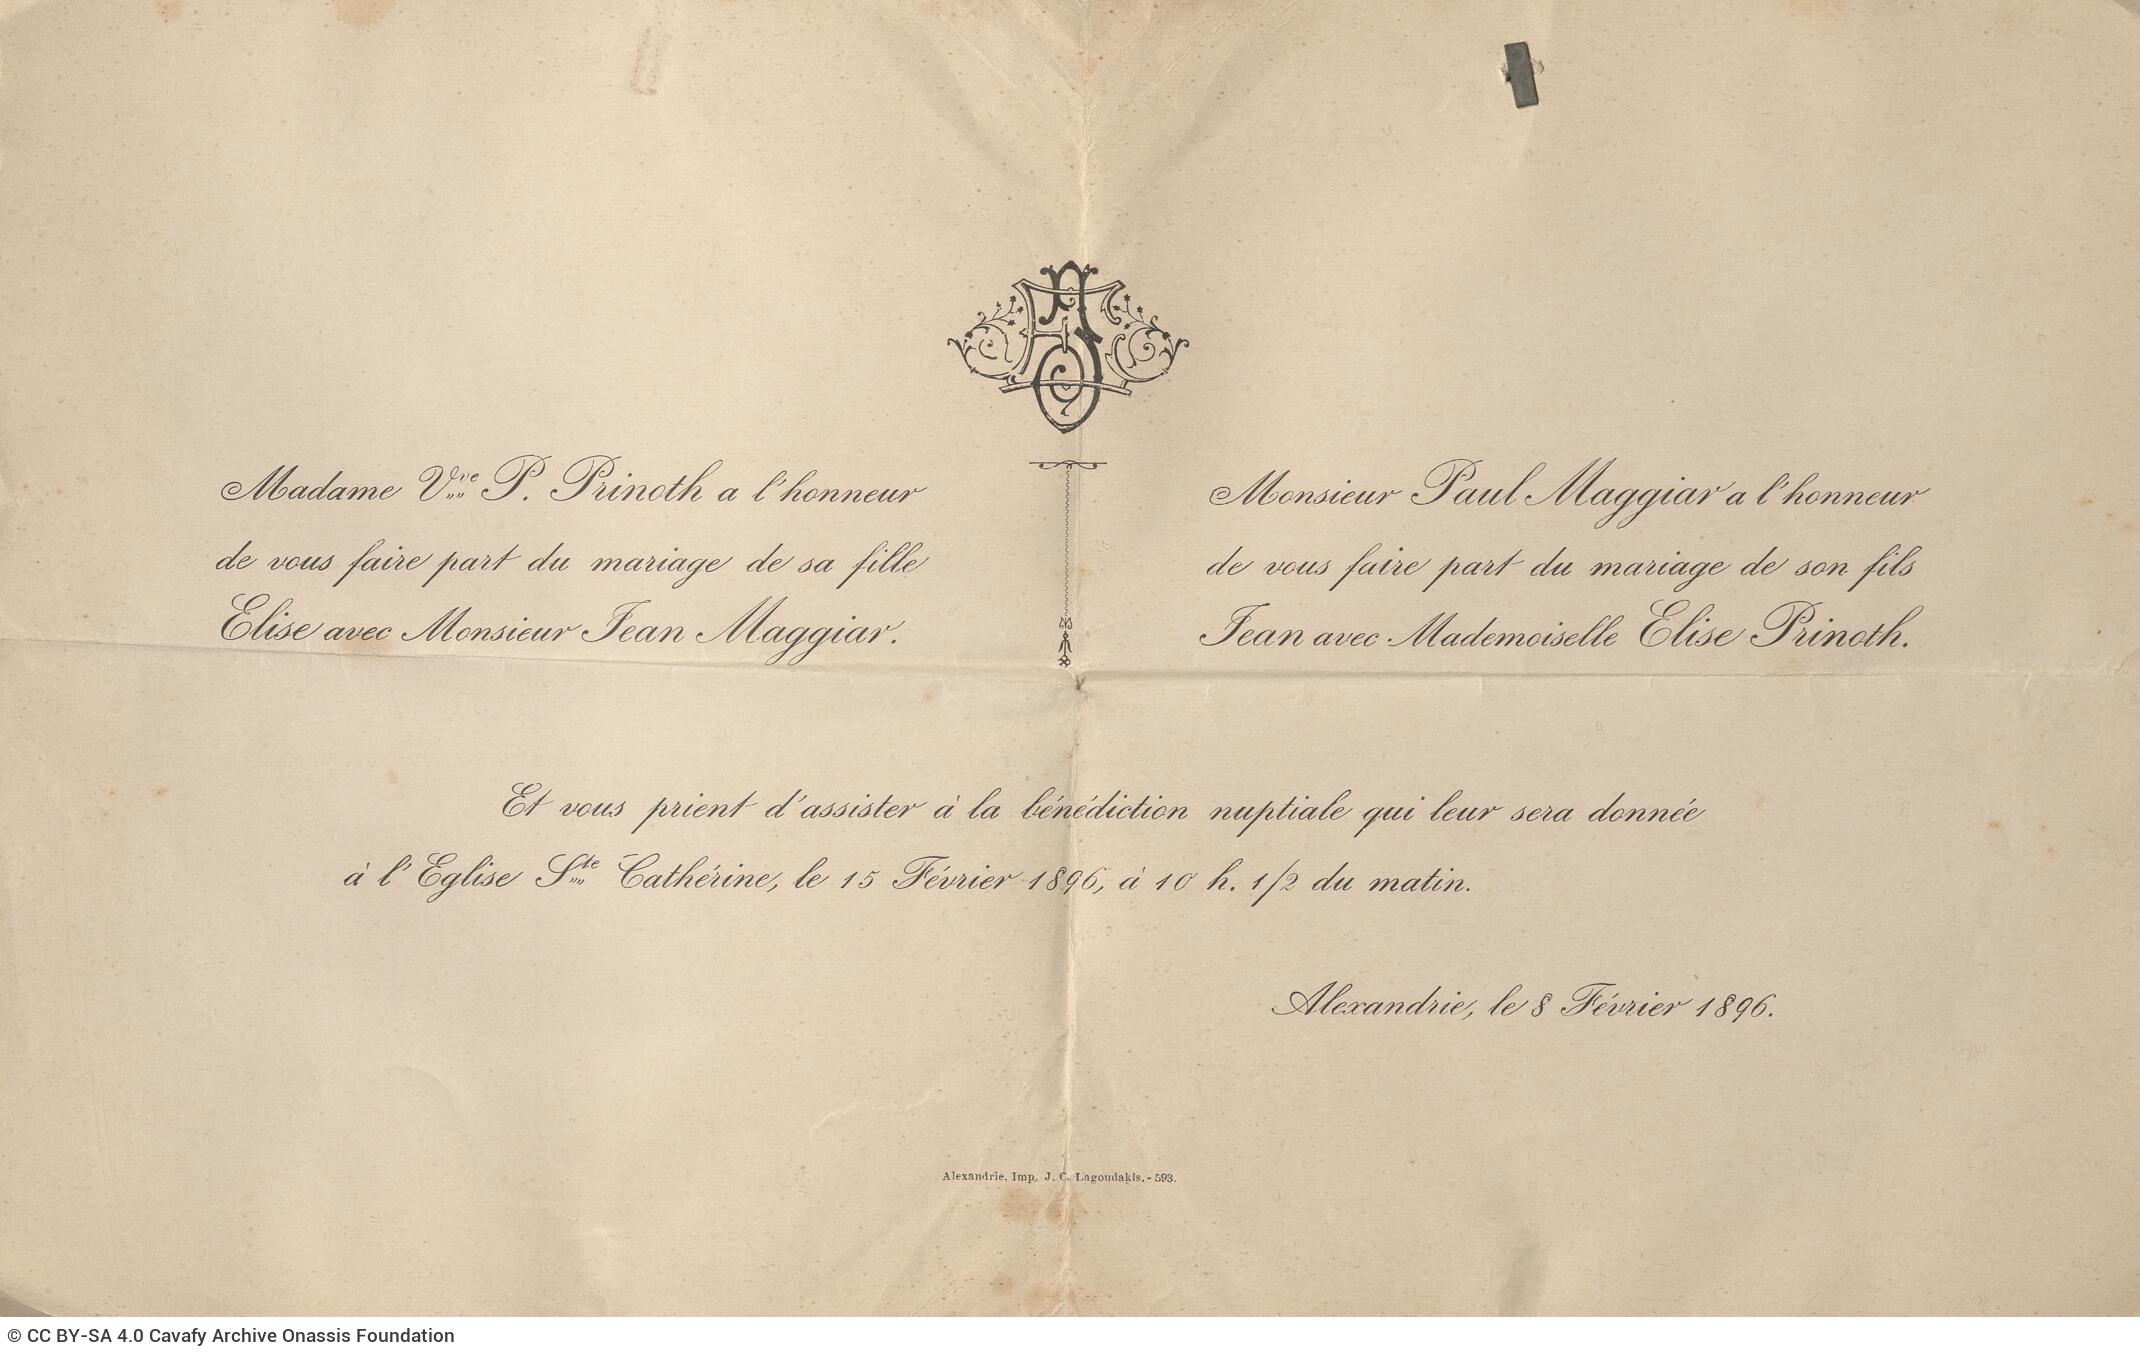 Madame Vve P. Prinoth a l'honneur
de vous faire part du mariage de sa fille
Elise avec Monsieur Jean Maggiar.
Monsieur Paul Maggiar a l'honneur
de vous faire part du mariage de son fils
Jean avec Mademoiselle Elise Prinoth.
Et vous prient d'assister à la bénédiction nuptiale qui leur sera donnée
à l'Eglise Ste Cathérine, le 15 Février 1896, à 10 h. 1/2 du matin.
Alexandrie, le 8 Février 1896.
Alexandrie, Imp. J. C. Lagoudakis. - 593.
© CC BY-SA 4.0 Cavafy Archive Onassis Foundation